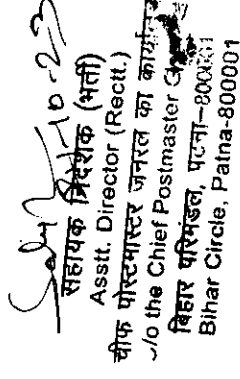 -10-23
सहायक निदेशक (भर्ती)
Asstt. Director (Rectt.)
चीफ पोस्टमास्टर जनरल का कार्यालय
/o the Chief Postmaster
बिहार परिमंडल, पटना-800001
Bihar Circle, Patna-800001